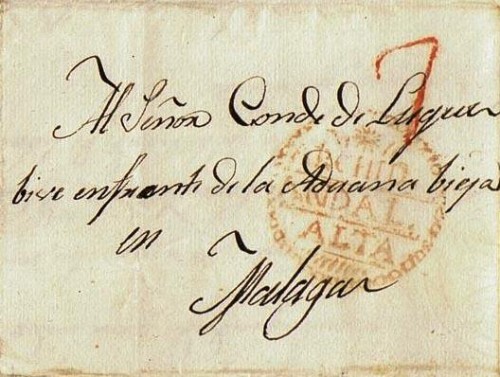 7
Al Señor Conde de Luque
bive enfrente de la Aduana bieja
en
Malaga
ANDAL.
ALTA